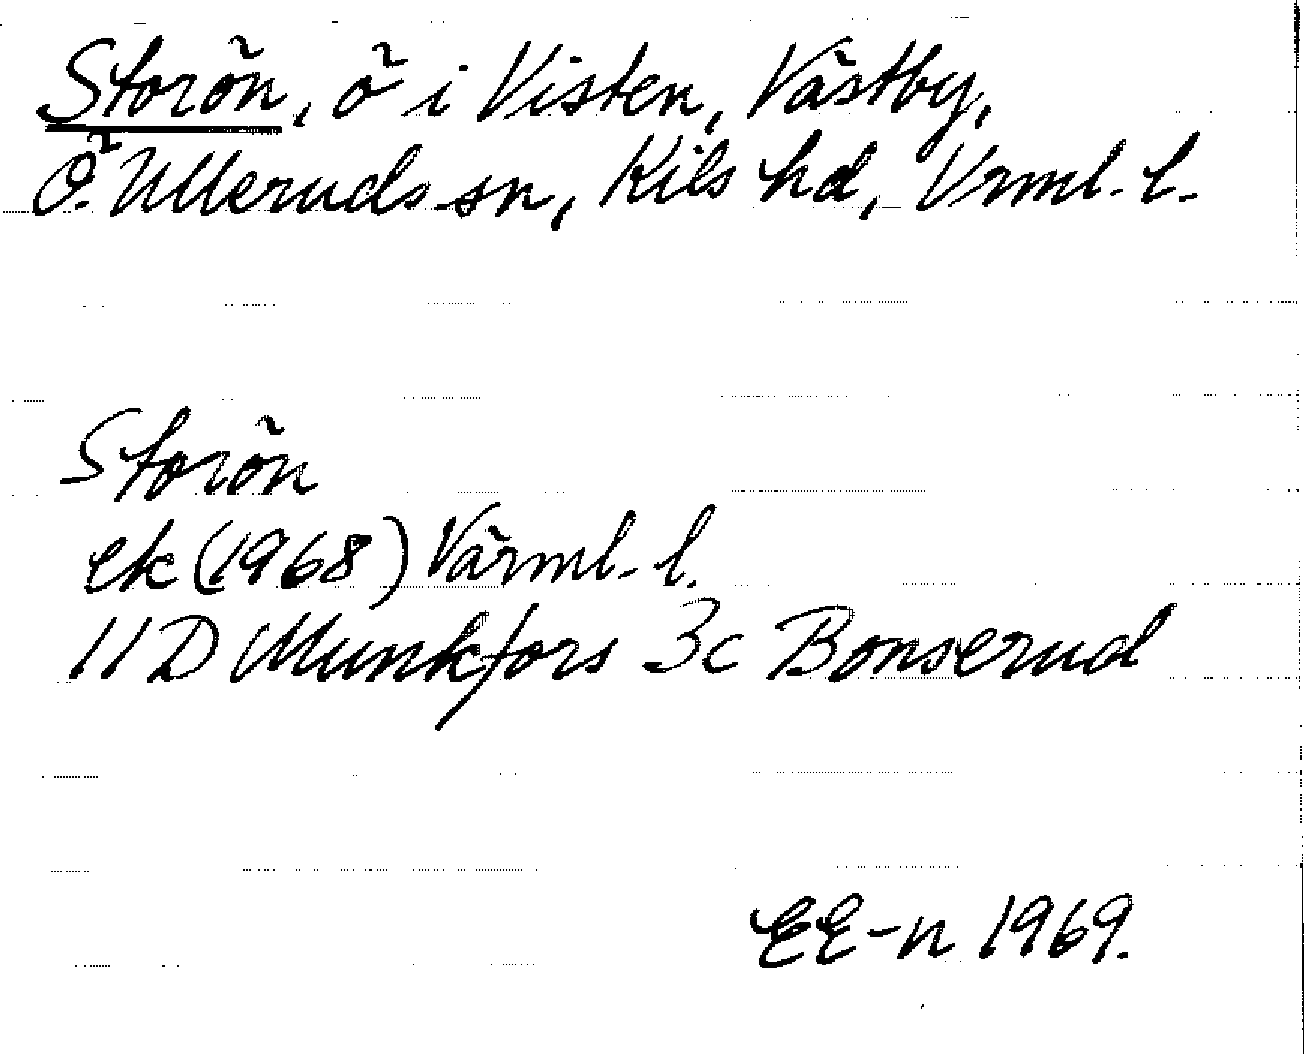 Storön, ö i Visten, Västby,
Ö. Ulleruds sn, Kils hd, Vrml. l.
Storön
ek (1968) Värml. l.
11D Munkfors 3c Bonserud
EE-n 1969.